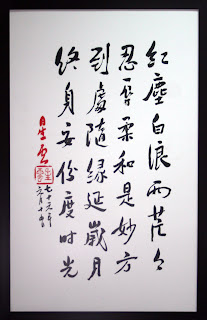 紅塵白浪兩茫々
忍辱柔和是妙方
到處隨緣延歲月
終身安份度时光
星雲